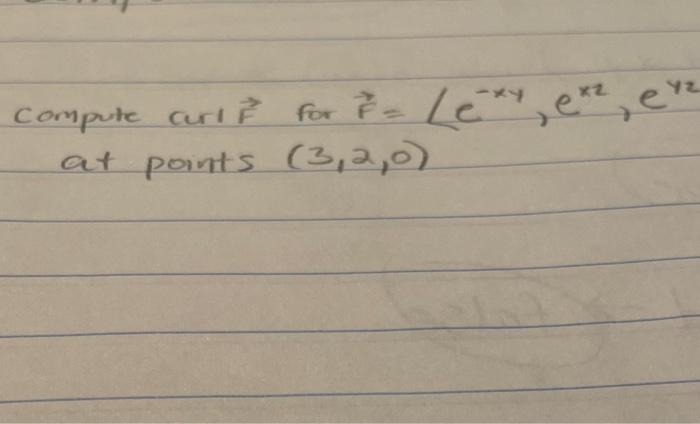 compute curl F⃗ for F⃗ = ⟨e^-xy, e^xz, e^yz
at points (3,2,0)